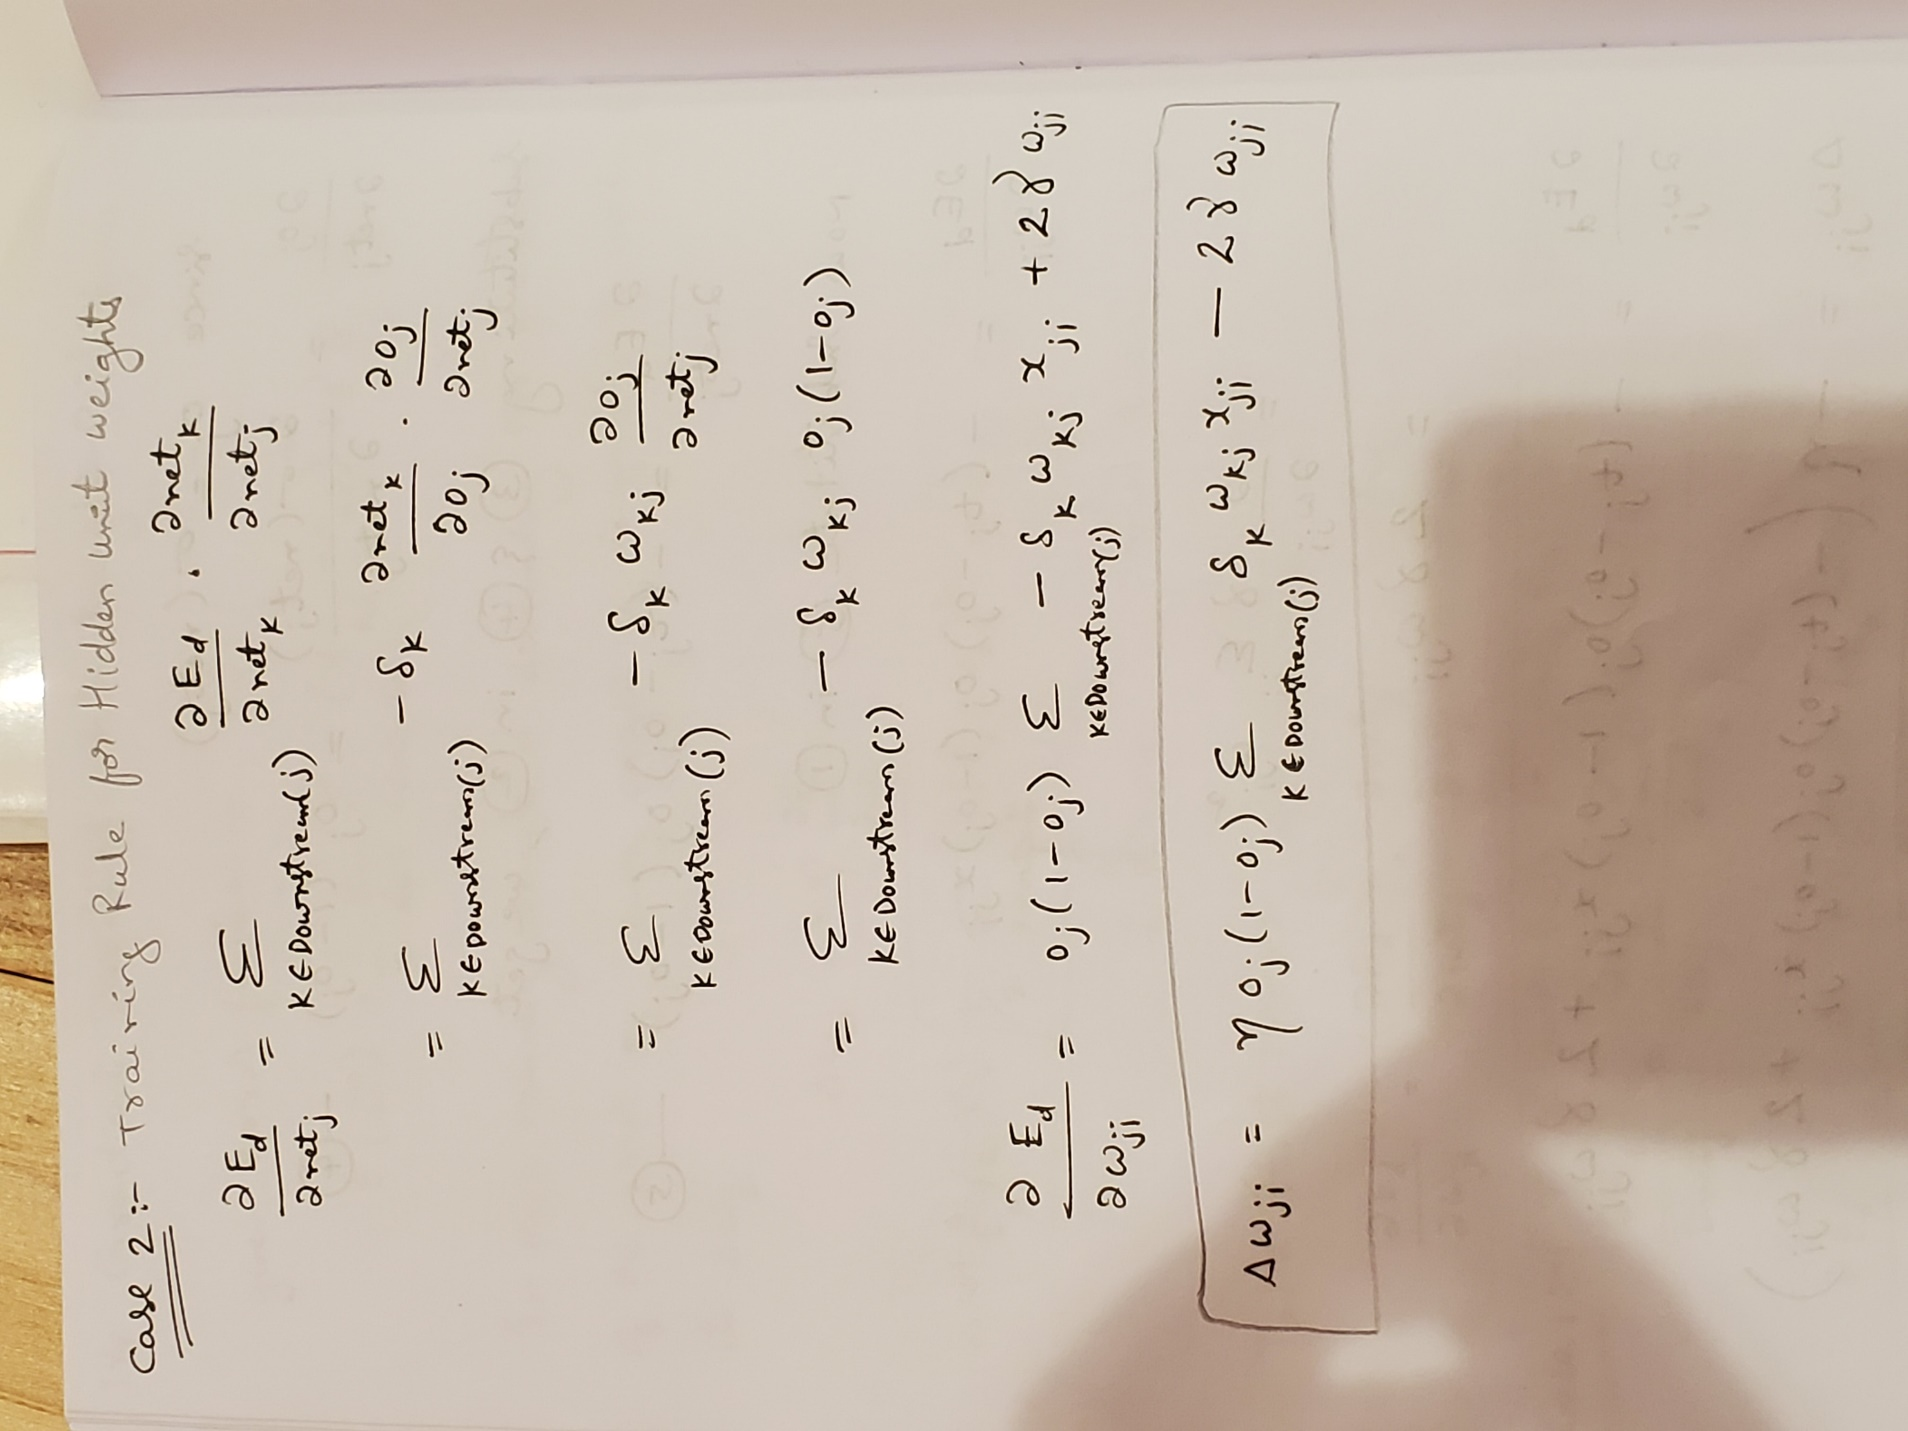 Case 2:- Training Rule for Hidden unit weights
∂E_d/∂net_j = Σ_{K∈Downstream(j)} ∂E_d/∂net_K . ∂net_K/∂net_j
= Σ_{K∈Downstream(j)} -δ_K ∂net_K/∂o_j . ∂o_j/∂net_j
= Σ_{K∈Downstream(j)} -δ_K ω_Kj ∂o_j/∂net_j
= Σ_{K∈Downstream(j)} -δ_K ω_Kj o_j(1-o_j)
∂E_d/∂ω_ji = o_j(1-o_j) Σ_{K∈Downstream(j)} -δ_K ω_Kj x_ji + 2γ ω_ji
Δω_ji = η o_j(1-o_j) Σ_{K∈Downstream(j)} δ_K ω_Kj x_ji - 2γ ω_ji